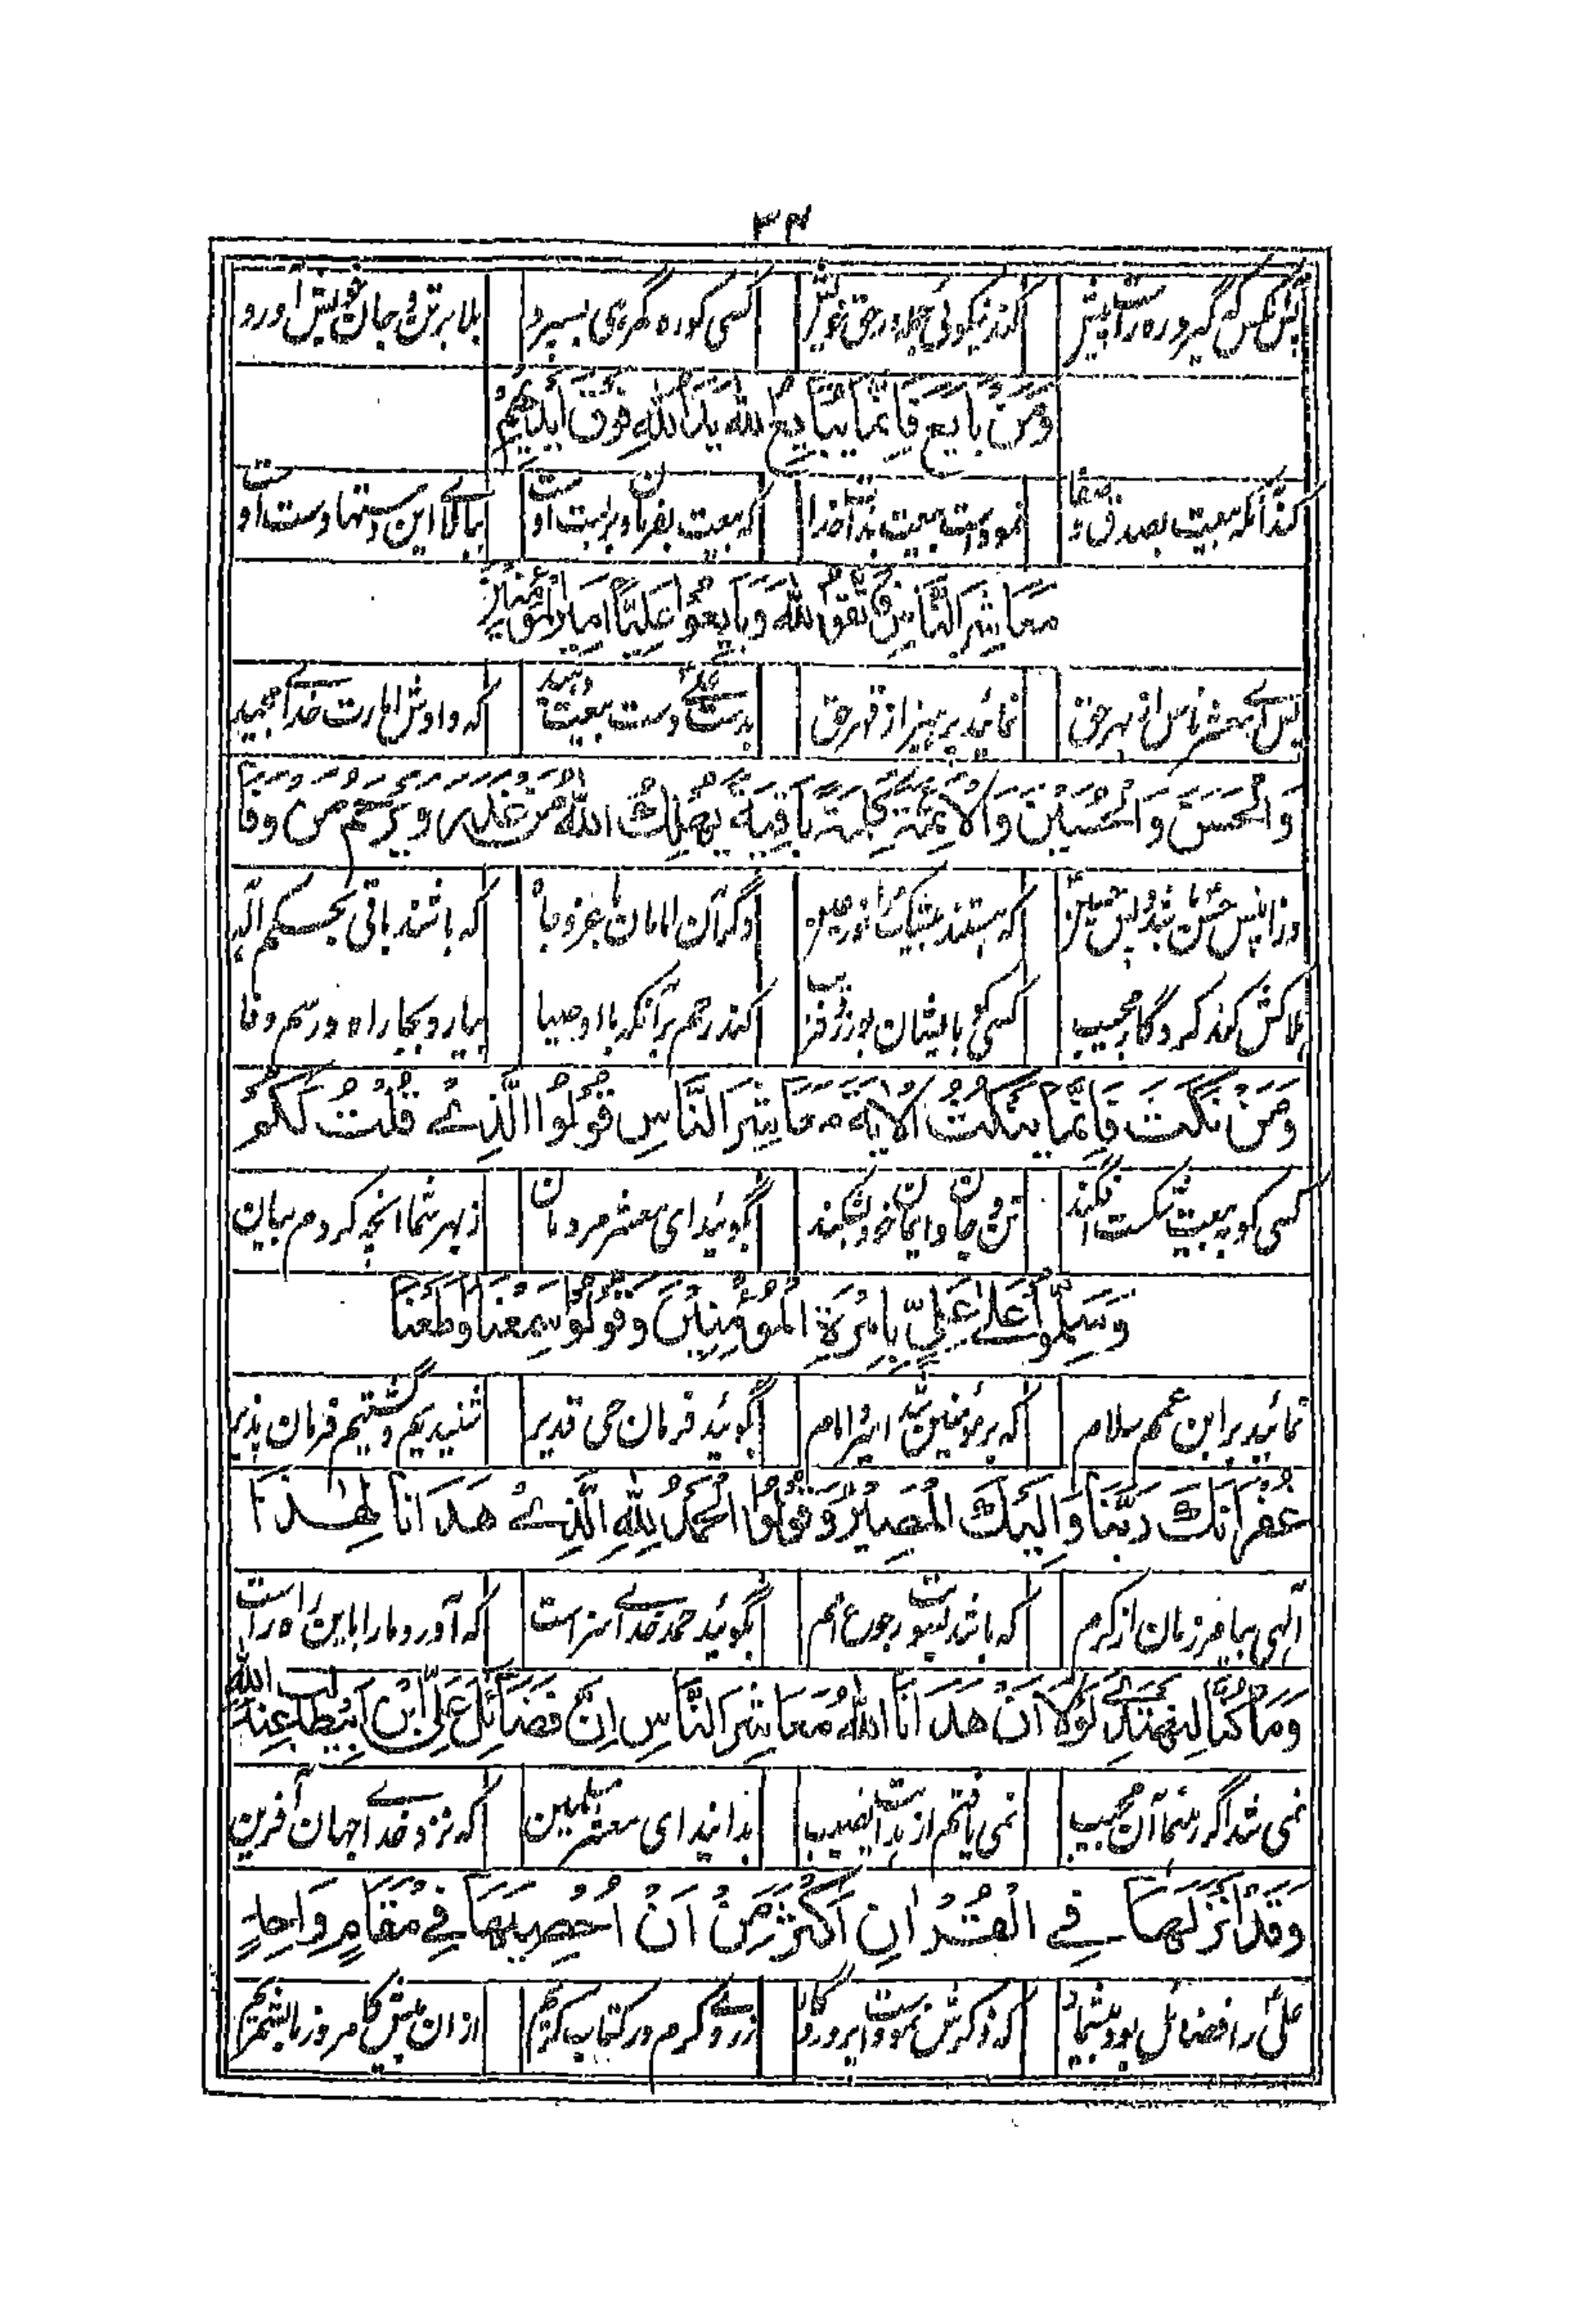 ۳۴
پس آنکس که گیرد ره راست پیش کند نیکوئی جمله در حق خویش کسی کو ره گمرهی بسپرد بلا بر تن و جان خویش آورد
وَمَنْ بَايَعَ فَاِنَّمَا يُبَايِعُ اللهَ يَدُ اللهِ فَوْقَ اَيْدِيْهِمْ
کند آنکه بیعت بصدق و صفا نمودست بیعت بذات خدا که بیعت بفرمان رب است بالای این دستها دست او
مَعَاشِرَ النَّاسِ فَاتَّقُوا اللهَ وَبَايِعُوْا عَلِيًّا اَمِيْرَ الْمُؤْمِنِيْنَ
پس ای معشر ناس از بهر حق نمائید پرهیز از قهر حق بدست علی دست بیعت دهید که دادش امارت خدای مجید
وَالْحَسَنَ وَالْحُسَيْنَ وَالْاَئِمَّةَ كَلِمَةً بَاقِيَةً يُهْلِكُ اللهُ مَنْ غَدَرَ وَيَرْحَمُ مَنْ وَفَا
وزان پس حسن باشد و پس حسین که هستند بیشک مرا نور عین دگر آن امامان با عز و جاه که باشند باقی بحکم اله
هلاکش کند کردگار مجیب کسی کو بایشان بورزد فریب کند رحم بر آنکه با اوصیا بیارد بجا راه و رسم وفا
وَمَنْ نَكَثَ فَاِنَّمَا يَنْكُثُ الْاٰيَةَ مَعَاشِرَ النَّاسِ قُوْلُوا الَّذِيْ قُلْتُ لَكُمْ
کسی کو به بیعت شکست افکند تن و جان و ایمان خود بشکند بگوئید ای معشر مردمان ز بهر شما آنچه کردم بیان
وَسَلِّمُوْا عَلٰى عَلِيٍّ بِاِمْرَةِ الْمُؤْمِنِيْنَ وَقُوْلُوْا سَمِعْنَا وَاَطَعْنَا
نمائید بر ابن عمم سلام که بر مؤمنین شد امیر و امام بگوئید فرمان حی قدیر شنیدیم و گشتیم فرمان پذیر
غُفْرَانَكَ رَبَّنَا وَاِلَيْكَ الْمَصِيْرُ وَقُوْلُوا الْحَمْدُ لِلهِ الَّذِيْ هَدَانَا لِهٰذَا
الهی بیامرز مان از کرم که باشد بسویت رجوع امم بگوئید حمد خدای سزاست که آورد ما را باین راه راست
وَمَا كُنَّا لِنَهْتَدِيَ لَوْلَا اَنْ هَدَانَا اللهُ مَعَاشِرَ النَّاسِ اِنَّ فَضَائِلَ عَلِيِّ ابْنِ اَبِيْطَالِبٍ عِنْدَ اللهِ
نمی شد اگر رهنما آن مجیب نمی یافتم از هدایت نصیب بدانید ای معشر مسلمین که نزد خدای جهان آفرین
وَقَدْ اَنْزَلَهَا فِي الْقُرْاٰنِ اَكْثَرُ مِنْ اَنْ اُحْصِيَهَا فِيْ مَقَامٍ وَاحِدٍ
علی را فضائل بود بیشمار که ذکرش نمودست پروردگار ز روی کرم در کتاب کریم از ان بیش کامروز